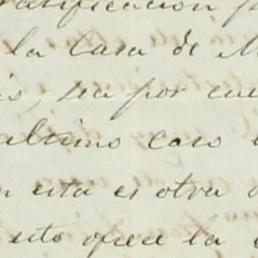 ratificación p
la Casa de M
is, sea por cue
ultimo caso e
n esta es otra
esto ofrece la